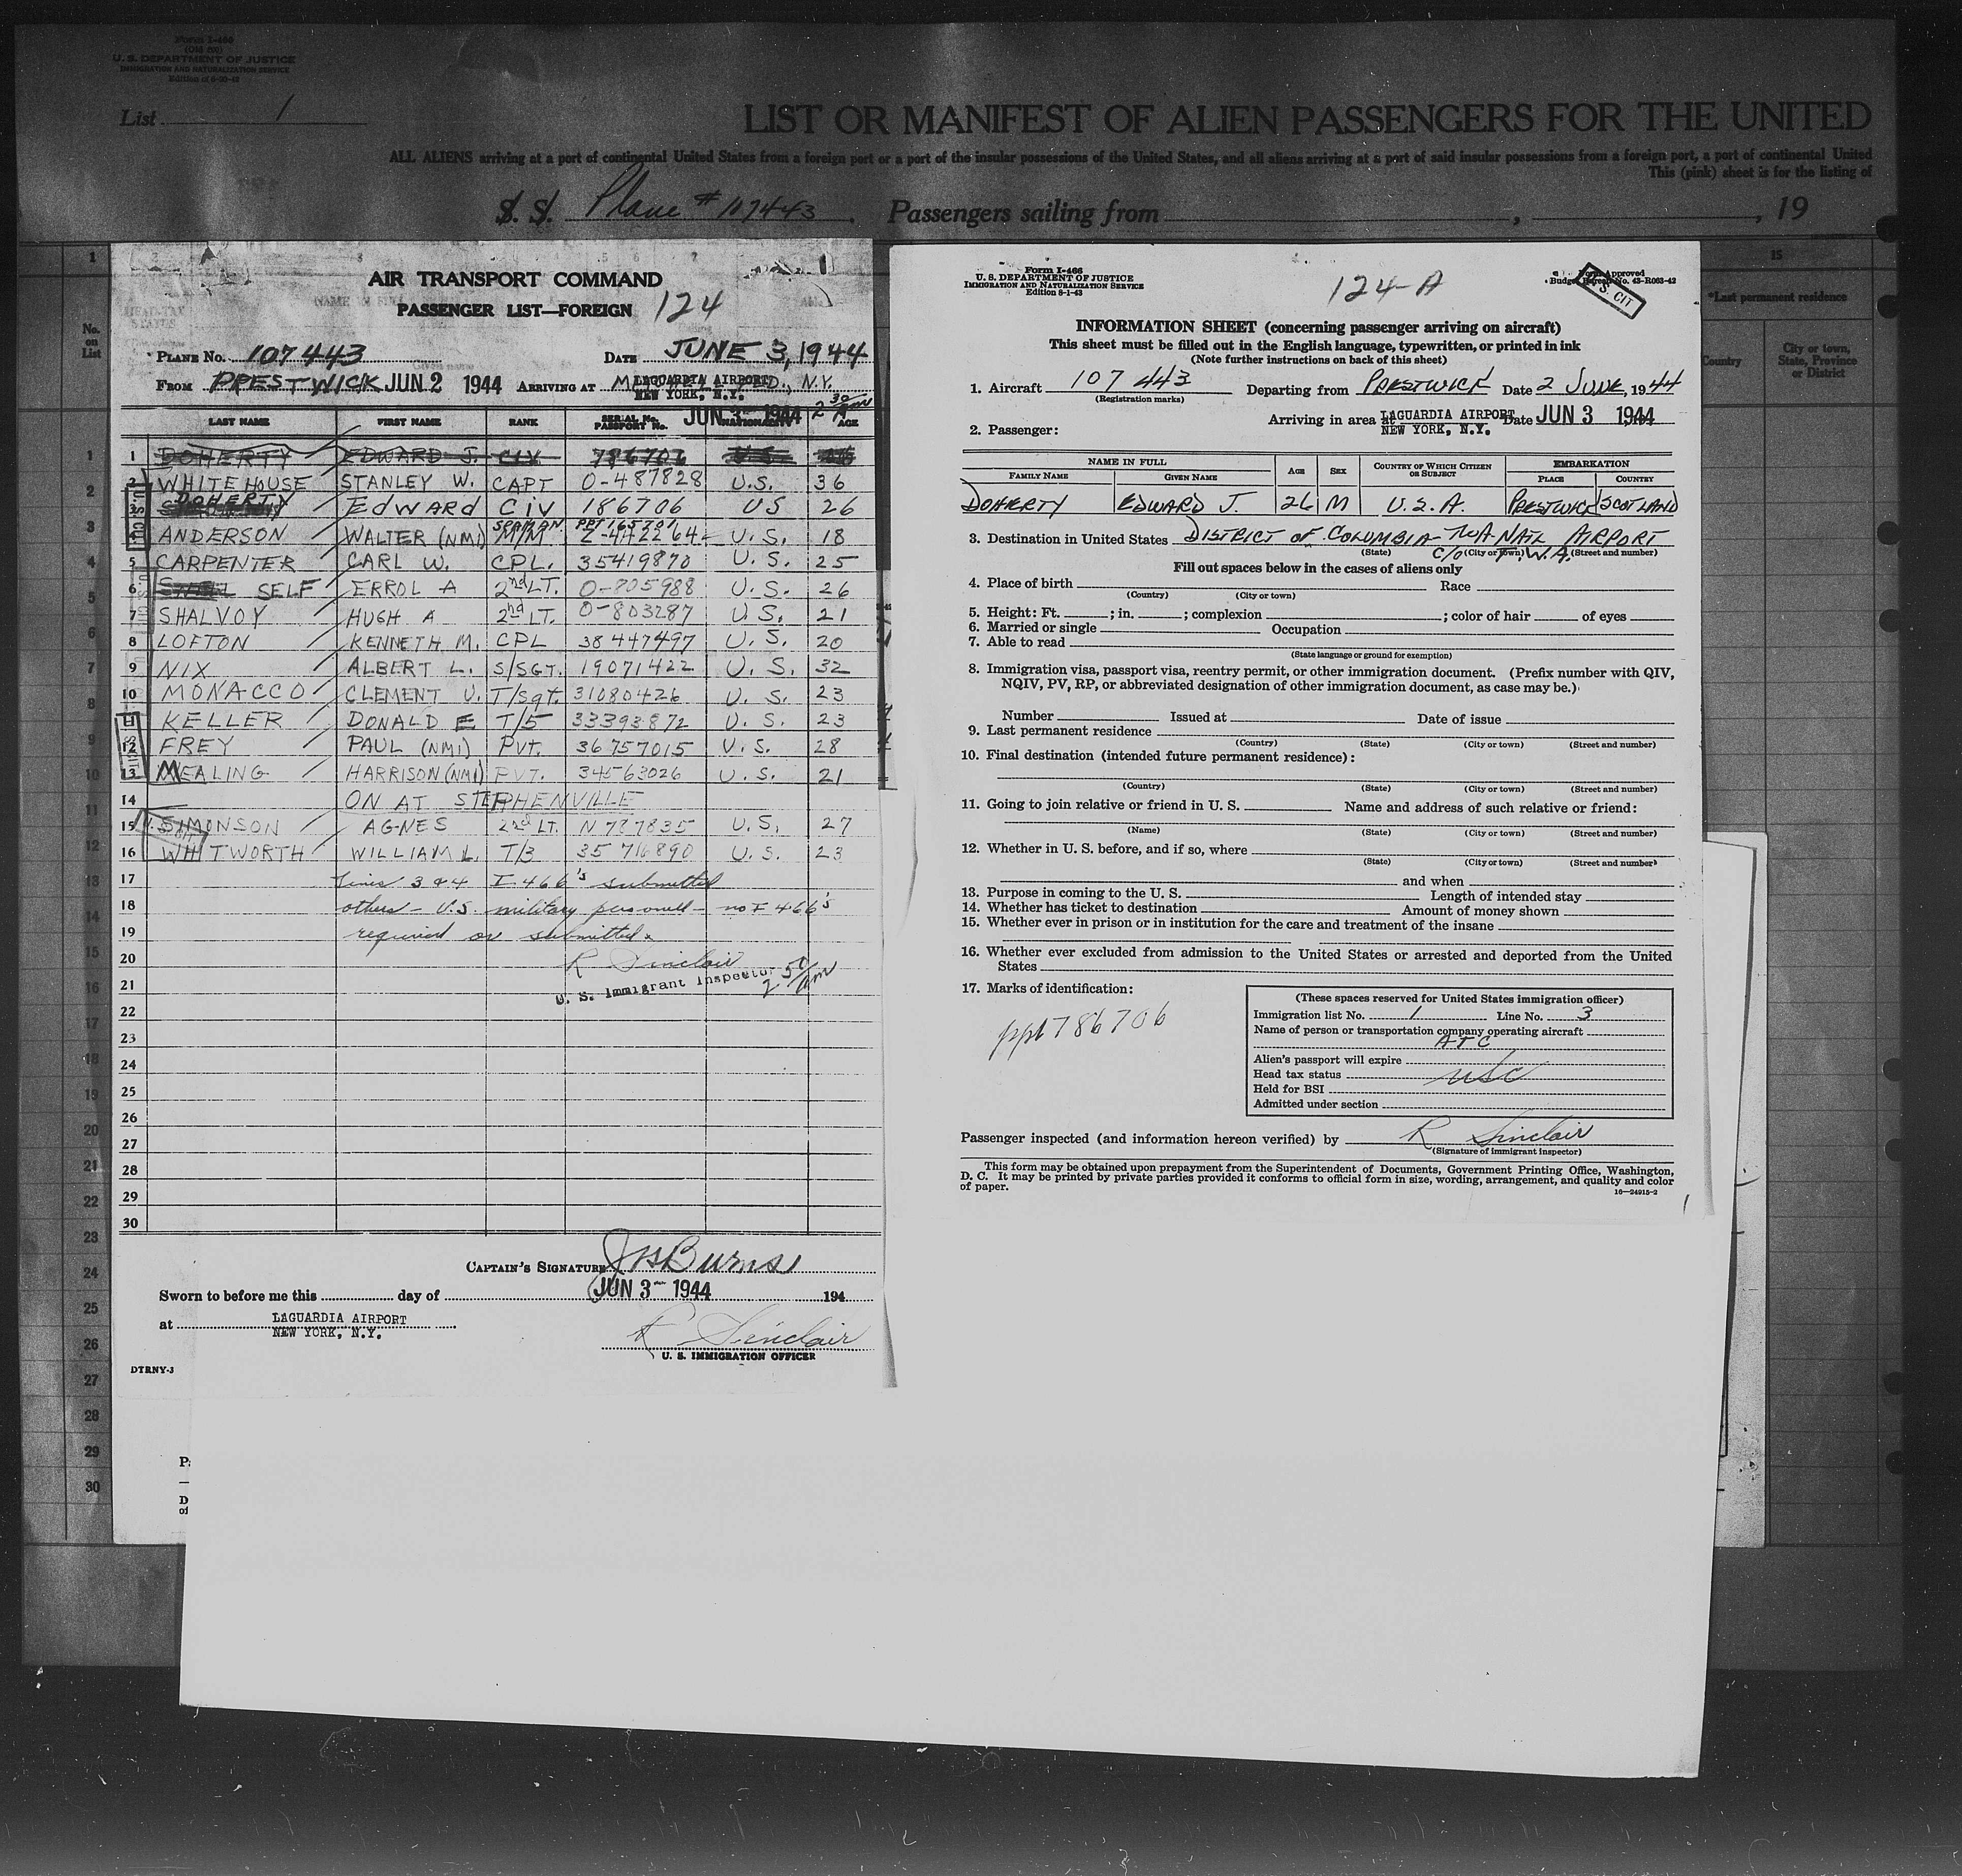 Form I-466
U. S. DEPARTMENT OF JUSTICE
IMMIGRATION AND NATURALIZATION SERVICE
List 1
LIST OR MANIFEST OF ALIEN PASSENGERS FOR THE UNITED
ALL ALIENS arriving at a port of continental United States from a foreign port or a port of the insular possessions of the United States, and all aliens arriving at a port of said insular possessions from a foreign port, a port of continental United
This (pink) sheet is for the listing of
S. S. Plane # 107443 Passengers sailing from , , 19
AIR TRANSPORT COMMAND
PASSENGER LIST—FOREIGN 124
PLANE No. 107443 DATE JUNE 3, 1944
FROM PRESTWICK JUN 2 1944 ARRIVING AT LAGUARDIA AIRPORT N.Y.
NEW YORK, N.Y.
JUN 3 1944 2 30 AM
LAST NAME FIRST NAME RANK SERIAL No. PASSPORT No. NATIONALITY AGE
1 DOHERTY EDWARD J. CIV 786706 U.S.
2 WHITEHOUSE STANLEY W. CAPT O-487828 U.S. 36
3 DOHERTY EDWARD CIV 186706 US 26
SEAMAN PPT 165701
ANDERSON WALTER (NMI) M/M Z-442264 U.S. 18
5 CARPENTER CARL W. CPL. 35419870 U.S. 25
6 SELF ERROL A 2nd LT. O-805988 U.S. 26
7 SHALVOY HUGH A 2nd LT. O-803287 U.S. 21
8 LOFTON KENNETH M. CPL 38447497 U.S. 20
9 NIX ALBERT L. S/SGT. 19071422 U.S. 32
10 MONACCO CLEMENT U. T/Sgt. 31080426 U.S. 23
11 KELLER DONALD E T/5 33393872 U.S. 23
12 FREY PAUL (NMI) PVT. 36757015 U.S. 28
13 MEALING HARRISON (NMI) PVT. 34563026 U.S. 21
14 ON AT STEPHENVILLE
15 SIMONSON AGNES 2nd LT. N 787835 U.S. 27
16 WHITWORTH WILLIAM L. T/3 35 716890 U.S. 23
17 Lines 3 & 4 I-466's submitted
18 others - U.S. military personell - no I 466's
19 required or submitted.
20 R Sinclair
21 U. S. Immigrant Inspector 2 50 am
22
23
24
25
26
27
28
29
30
CAPTAIN'S SIGNATURE JHBurns
Sworn to before me this day of JUN 3 1944 194
at LAGUARDIA AIRPORT
NEW YORK, N.Y.
R Sinclair
U. S. IMMIGRATION OFFICER
DTRNY-3
Form I-466
U. S. DEPARTMENT OF JUSTICE
IMMIGRATION AND NATURALIZATION SERVICE
Edition 8-1-43
124-A
Form Approved
Budget Bureau No. 43-R063-42
S. CIT
INFORMATION SHEET (concerning passenger arriving on aircraft)
This sheet must be filled out in the English language, typewritten, or printed in ink
(Note further instructions on back of this sheet)
1. Aircraft 107 443 Departing from PRESTWICK Date 2 JUNE, 1944
(Registration marks)
Arriving in area at LAGUARDIA AIRPORT Date JUN 3 1944
NEW YORK, N.Y.
2. Passenger:
NAME IN FULL AGE SEX COUNTRY OF WHICH CITIZEN OR SUBJECT EMBARKATION
FAMILY NAME GIVEN NAME PLACE COUNTRY
DOHERTY EDWARD J. 26 M U.S.A. PRESTWICK SCOTLAND
3. Destination in United States DISTRICT OF COLUMBIA - NAT'L AIRPORT
(State) C/O (City or town) T.W.A. (Street and number)
Fill out spaces below in the cases of aliens only
4. Place of birth Race
(Country) (City or town)
5. Height: Ft. ; in. ; complexion ; color of hair of eyes
6. Married or single Occupation
7. Able to read
(State language or ground for exemption)
8. Immigration visa, passport visa, reentry permit, or other immigration document. (Prefix number with QIV,
NQIV, PV, RP, or abbreviated designation of other immigration document, as case may be.)
Number Issued at Date of issue
9. Last permanent residence
(Country) (State) (City or town) (Street and number)
10. Final destination (intended future permanent residence):
(Country) (State) (City or town) (Street and number)
11. Going to join relative or friend in U. S. Name and address of such relative or friend:
(Name) (State) (City or town) (Street and number)
12. Whether in U. S. before, and if so, where
(State) (City or town) (Street and number)
and when
13. Purpose in coming to the U. S. Length of intended stay
14. Whether has ticket to destination Amount of money shown
15. Whether ever in prison or in institution for the care and treatment of the insane
16. Whether ever excluded from admission to the United States or arrested and deported from the United
States
17. Marks of identification:
ppt 786706
(These spaces reserved for United States immigration officer)
Immigration list No. 1 Line No. 3
Name of person or transportation company operating aircraft
ATC
Alien's passport will expire
Head tax status USC
Held for BSI
Admitted under section
Passenger inspected (and information hereon verified) by R Sinclair
(Signature of immigrant inspector)
This form may be obtained upon prepayment from the Superintendent of Documents, Government Printing Office, Washington,
D. C. It may be printed by private parties provided it conforms to official form in size, wording, arrangement, and quality and color
of paper.
16—24915-2
15
*Last permanent residence
Country City or town, State, Province or District